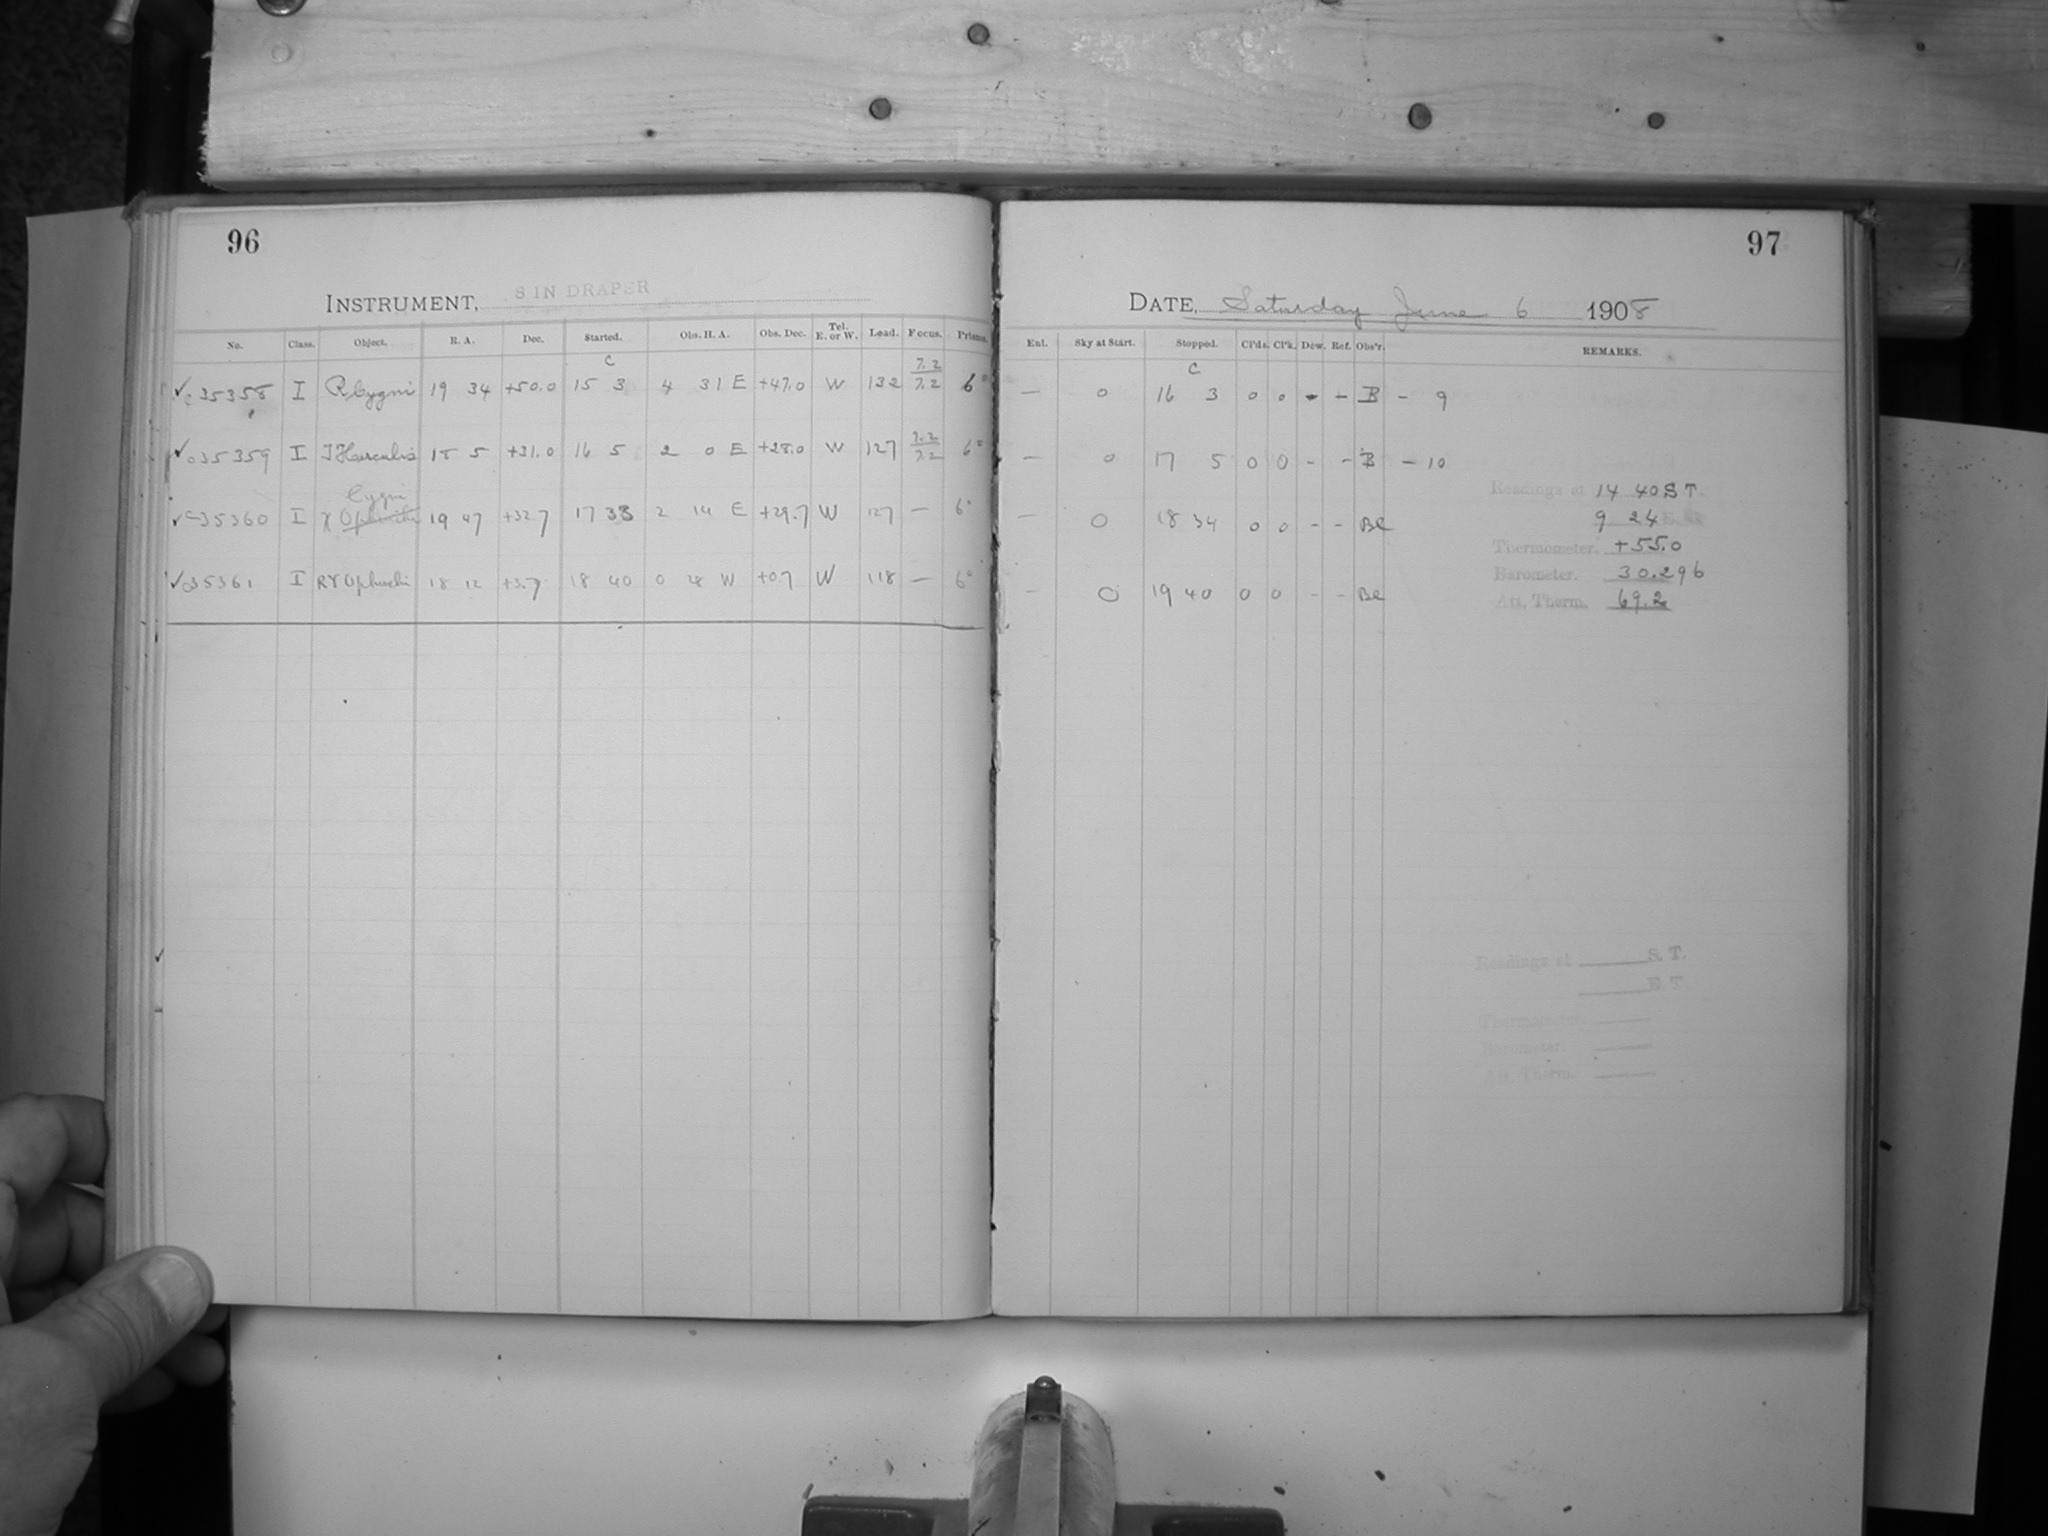 96
INSTRUMENT, 8 IN DRAPER
No. Class. Object. R. A. Dec. Started. Obs. H. A. Obs. Dec. Tel. E. or W. Lead. Focus. Prisms.
✓c35358 I R Cygni 19 34 +50.0 C 15 3 4 31 E +47.0 W 132 7.2 7.2 6°
✓c35359 I T Herculis 18 5 +31.0 16 5 2 0 E +28.0 W 127 7.2 7.2 6°
Cygni
✓c35360 I χ 19 47 +32.7 17 33 2 14 E +29.7 W 127 — 6°
✓c35361 I RY Ophiuchi 18 12 +3.7 18 40 0 28 W +07 W 118 — 6°
97
DATE, Saturday June 6 1908
Ent. Sky at Start. Stopped. Cl'ds. Cl'k. Dew. Ref. Obs'r. REMARKS.
— 0 C 16 3 0 0 - - B - 9
— 0 17 5 0 0 - - B - 10
— 0 18 34 0 0 - - Be
- 0 19 40 0 0 - - Be
Readings at 14 40 S T.
9 24
Thermometer. +55.0
Barometer. 30.296
Att. Therm. 69.2
Readings at S. T.
E. T.
Thermometer.
Barometer.
Att. Therm.